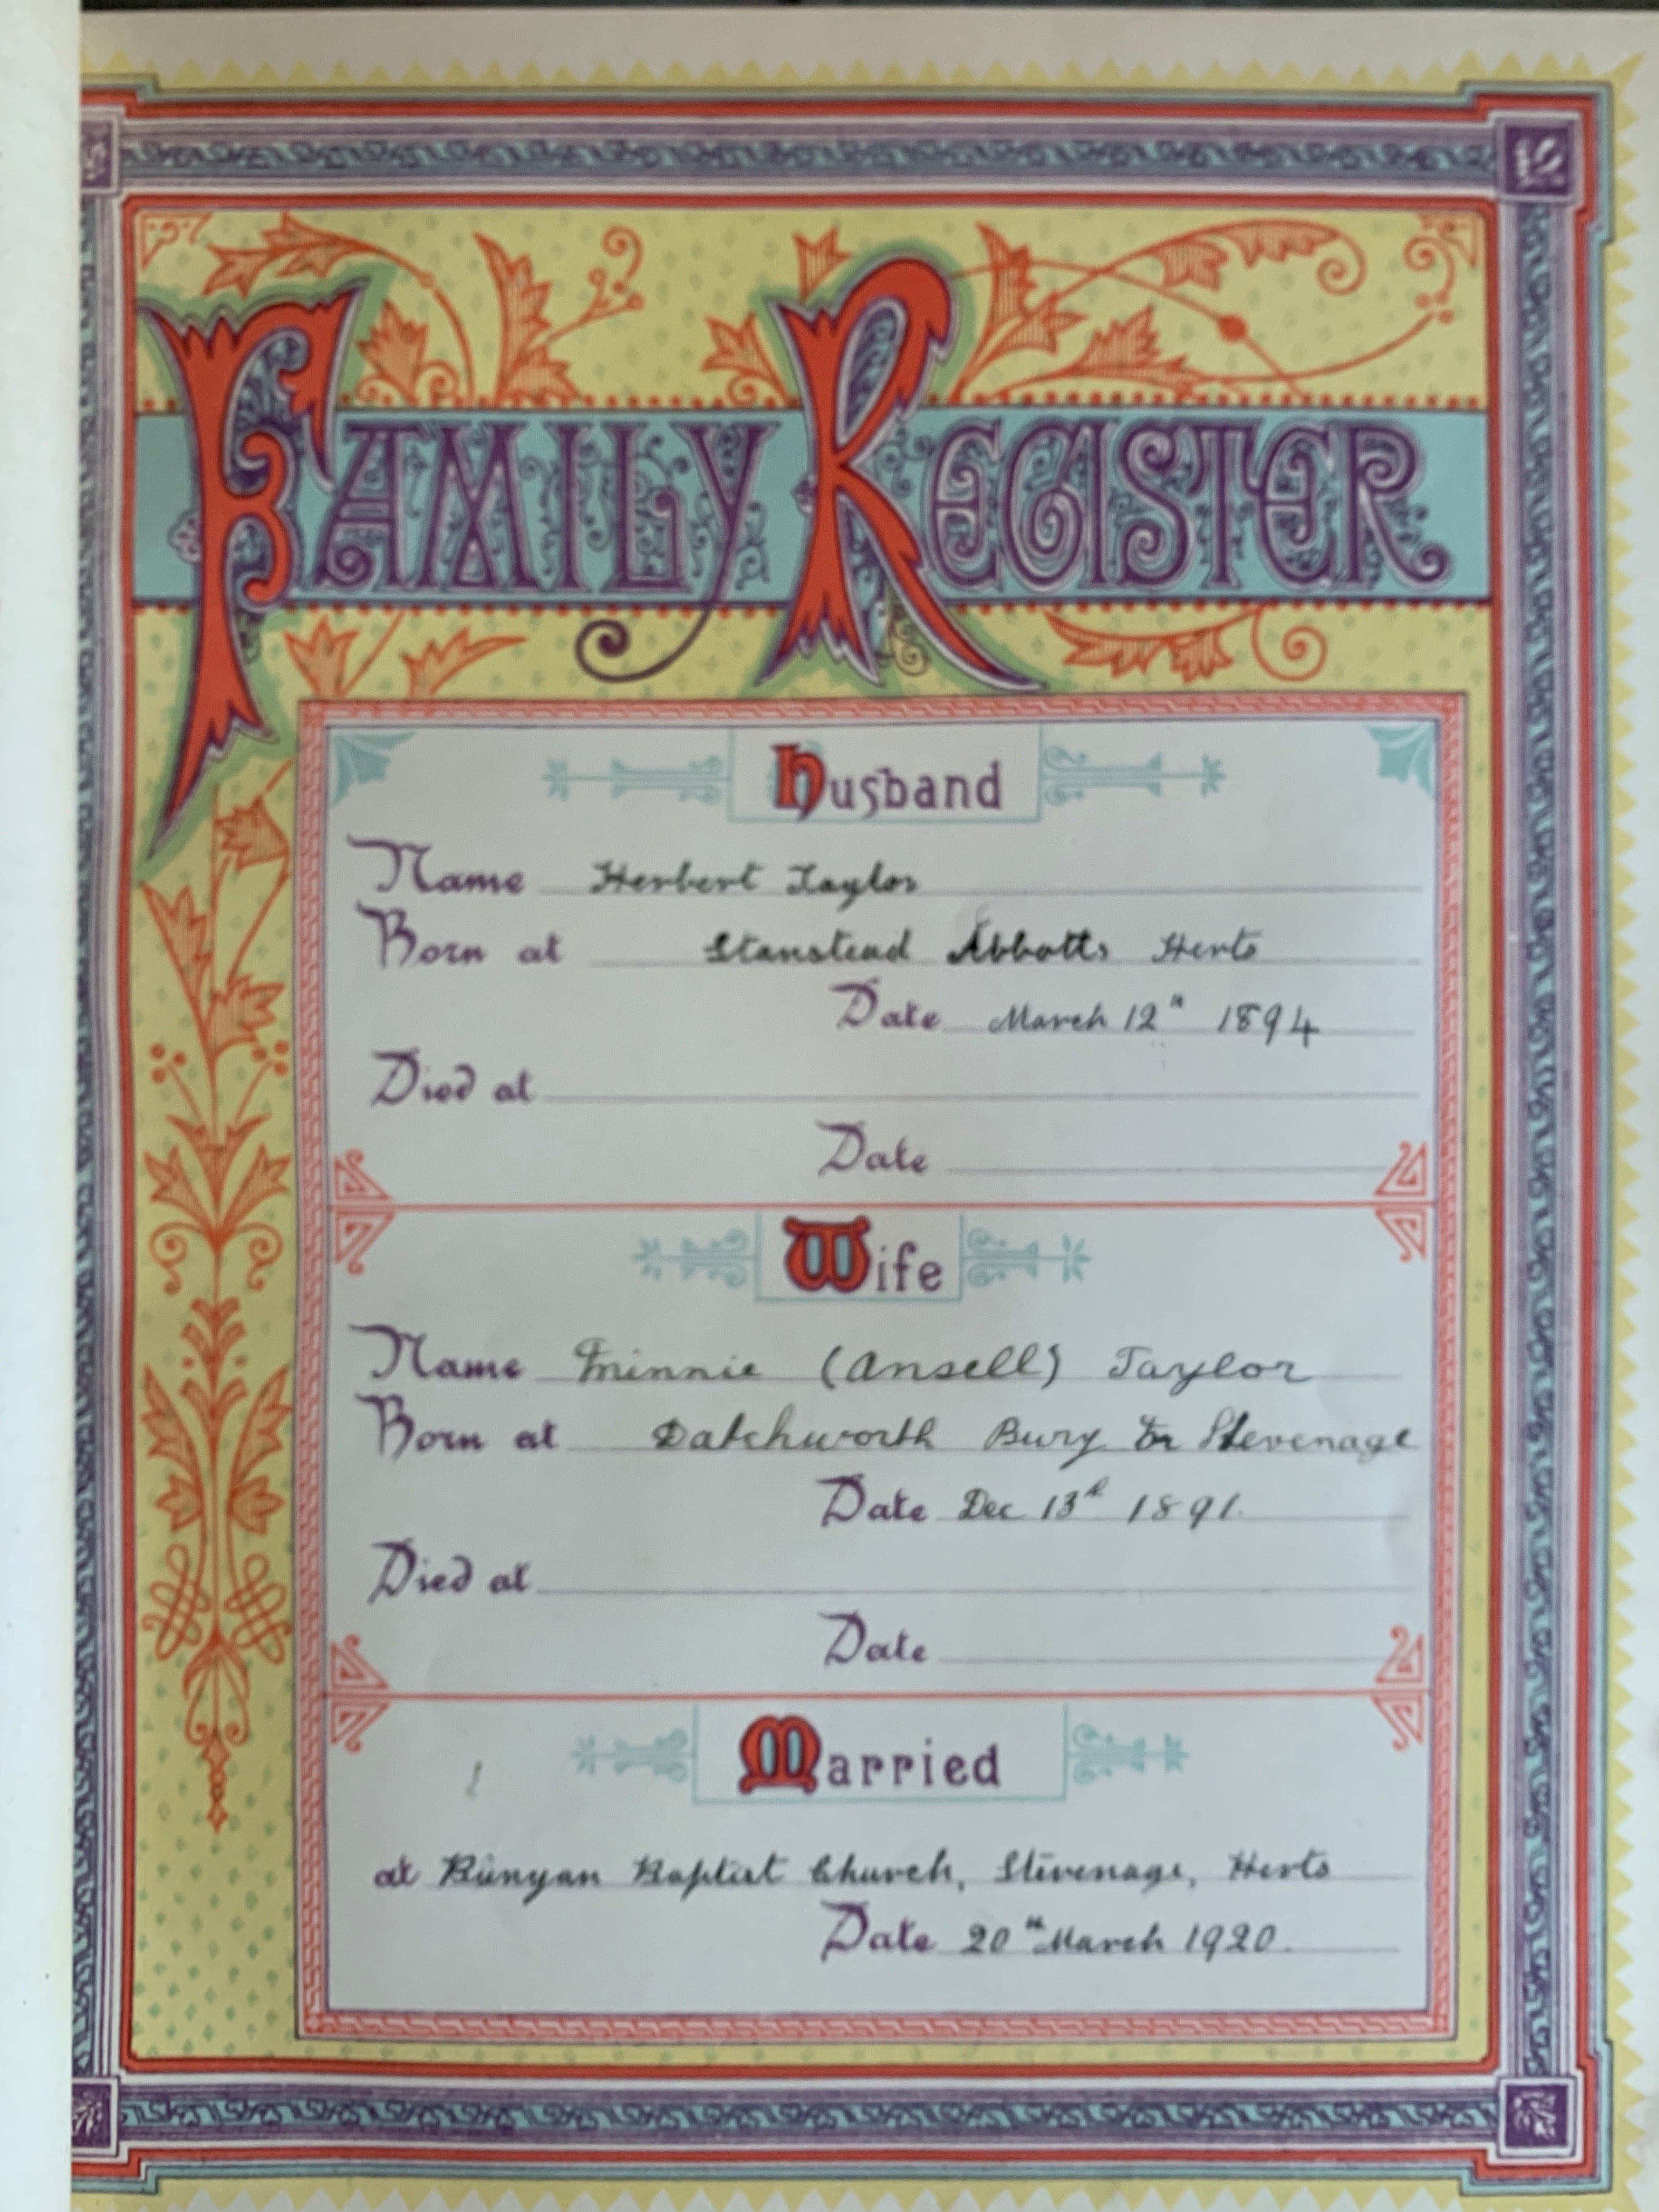 FAMILY REGISTER
Husband
Name Herbert Taylor
Born at Stanstead Abbotts Herts
Date March 12th 1894
Died at
Date
Wife
Name Minnie (Ansell) Taylor
Born at Datchworth Bury Stevenage
Date Dec 13th 1891.
Died at
Date
Married
at Bunyan Baptist Church, Stevenage, Herts
Date 20th March 1920.